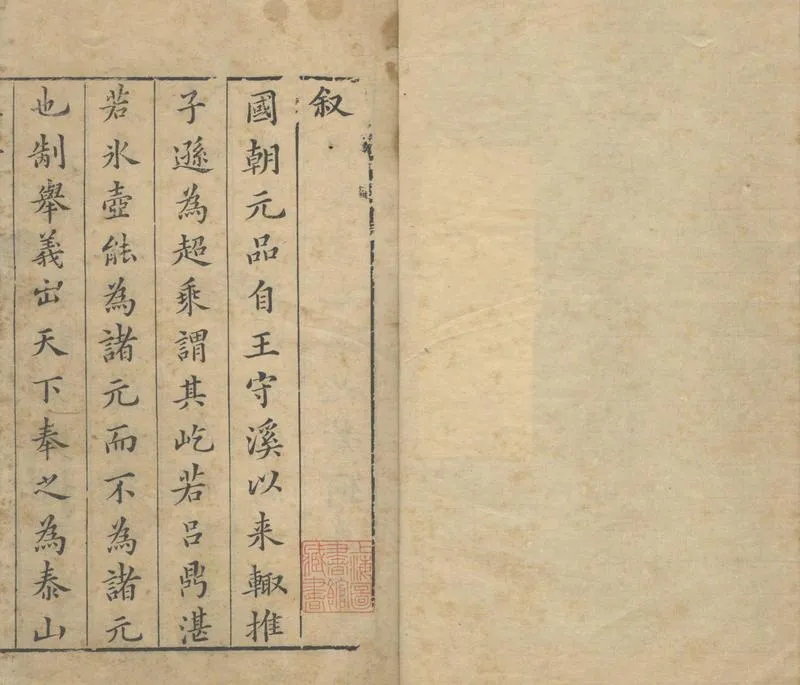 叙
國朝元品自王守溪以来輙推
子遜為超乘謂其屹若呂鼎湛
若氷壺能為諸元而不為諸元
也制舉義出天下奉之為泰山
上海圖書館藏書